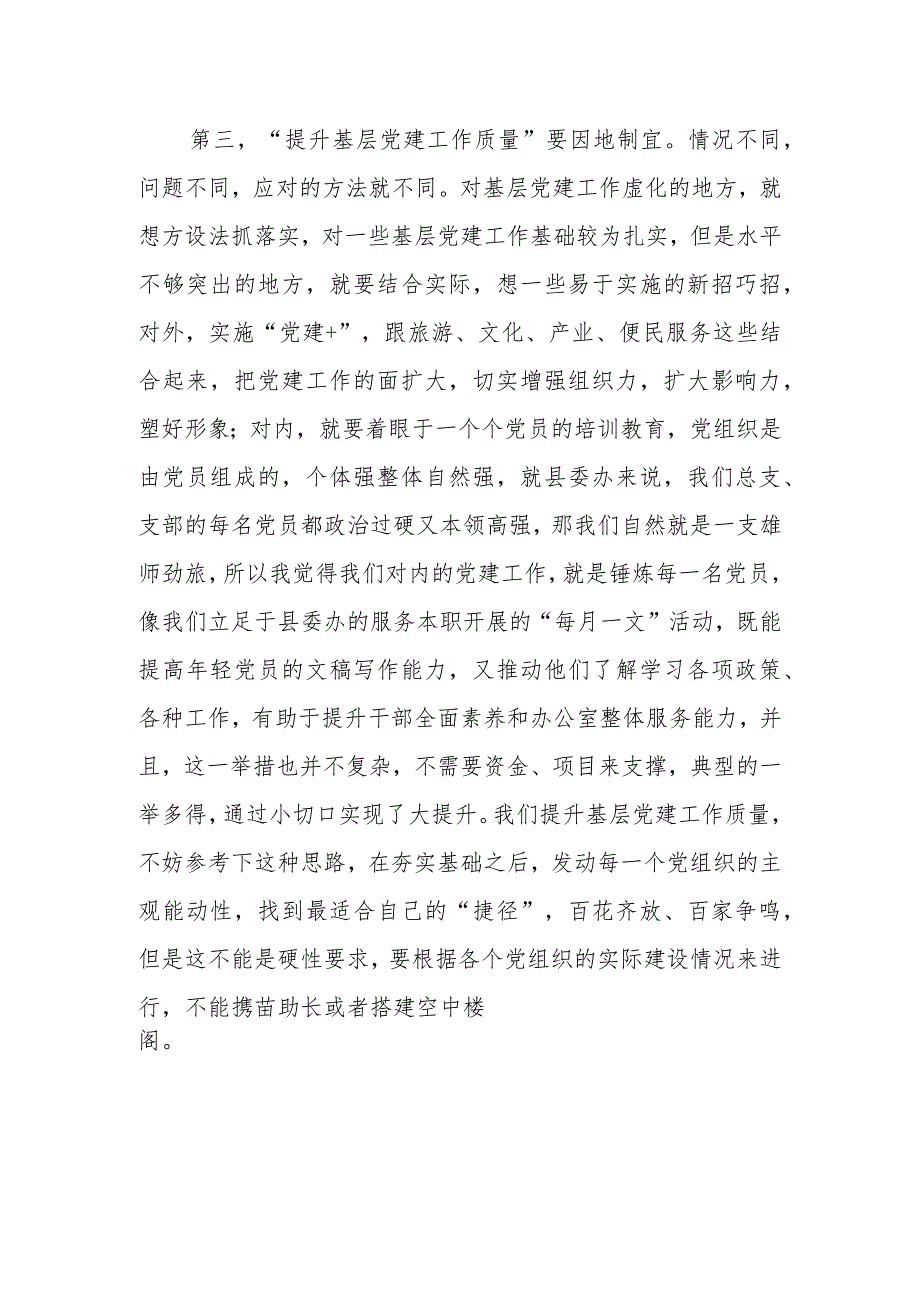 第三，“提升基层党建工作质量”要因地制宜。情况不同，
问题不同，应对的方法就不同。对基层党建工作虚化的地方，就
想方设法抓落实，对一些基层党建工作基础较为扎实，但是水平
不够突出的地方，就要结合实际，想一些易于实施的新招巧招，
对外，实施“党建+”，跟旅游、文化、产业、便民服务这些结
合起来，把党建工作的面扩大，切实增强组织力，扩大影响力，
塑好形象；对内，就要着眼于一个个党员的培训教育，党组织是
由党员组成的，个体强整体自然强，就县委办来说，我们总支、
支部的每名党员都政治过硬又本领高强，那我们自然就是一支雄
师劲旅，所以我觉得我们对内的党建工作，就是锤炼每一名党员，
像我们立足于县委办的服务本职开展的“每月一文”活动，既能
提高年轻党员的文稿写作能力，又推动他们了解学习各项政策、
各种工作，有助于提升干部全面素养和办公室整体服务能力，并
且，这一举措也并不复杂，不需要资金、项目来支撑，典型的一
举多得，通过小切口实现了大提升。我们提升基层党建工作质量，
不妨参考下这种思路，在夯实基础之后，发动每一个党组织的主
观能动性，找到最适合自己的“捷径”，百花齐放、百家争鸣，
但是这不能是硬性要求，要根据各个党组织的实际建设情况来进
行，不能携苗助长或者搭建空中楼
阁。